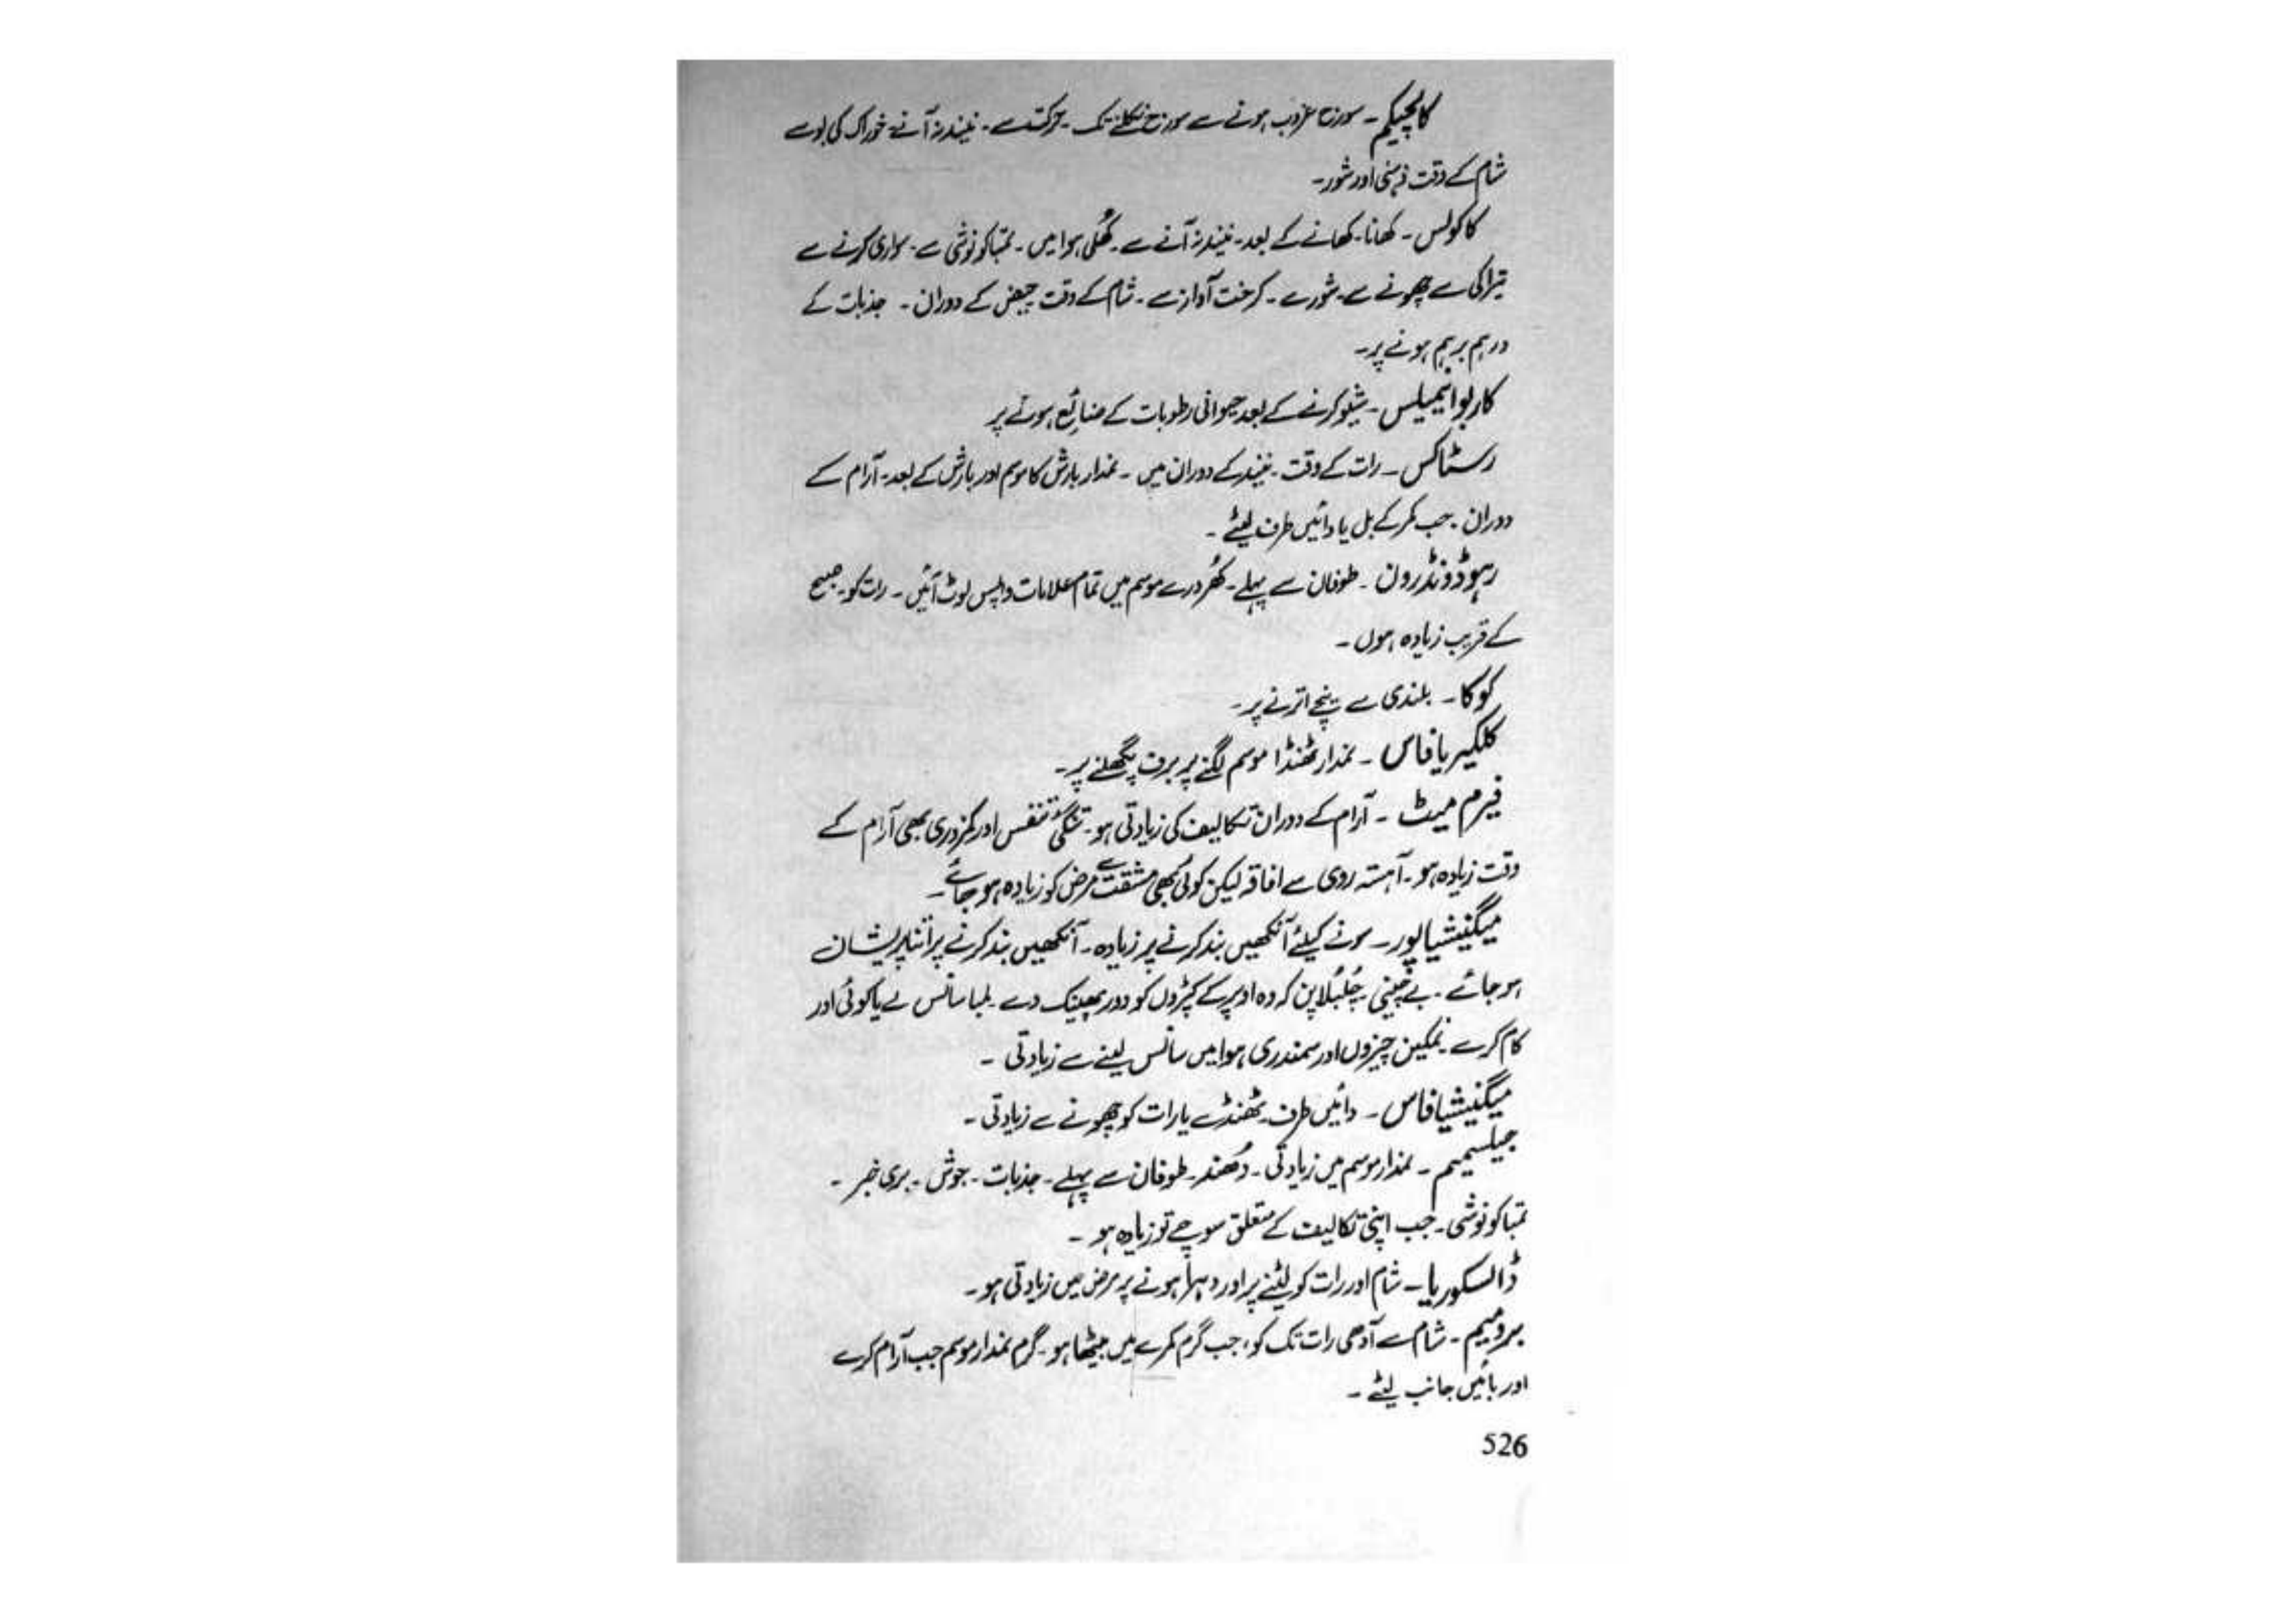 کالچیکم۔ سورج غروب ہونے سے سورج نکلنے تک۔ حرکت سے۔ نیند نہ آنے۔ خوراک کی بو سے
شام کے وقت ذہنی اور شور۔
کاکولس۔ کھانا کھانے کے بعد۔ نیند نہ آنے سے۔ کھُلی ہوا میں۔ تمباکو نوشی سے۔ سواری کرنے سے
تیراکی سے چھونے سے۔ شور سے۔ کرخت آواز سے۔ شام کے وقت حیض کے دوران۔ جذبات کے
درہم برہم ہونے پر۔
کاربو اینیمیلس۔ شیو کرنے کے بعد حیوانی رطوبات کے ضائع ہونے پر
رسٹاکس۔ رات کے وقت۔ نیند کے دوران میں۔ نمدار بارش کا موسم اور بارش کے بعد۔ آرام کے
دوران۔ جب کمر کے بل یا دائیں طرف لیٹے۔
رہوڈوڈنڈرون۔ طوفان سے پہلے۔ کھُردرے موسم میں تمام علامات واپس لوٹ آئیں۔ رات کو۔ صبح
کے قریب زیادہ ہوں۔
کوکا۔ بلندی سے نیچے اترنے پر۔
کلکیریا فاس۔ نمدار ٹھنڈا موسم لگنے پر برف پگھلنے پر۔
فیرم میٹ۔ آرام کے دوران تکالیف کی زیادتی ہو۔ تنگئ تنفس اور کمزوری بھی آرام کے
وقت زیادہ ہو۔ آہستہ روی سے افاقہ لیکن کوئی بھی مشقت سے مرض کو زیادہ ہو جائے۔
میگنیشیا میور۔ سونے کیلئے آنکھیں بند کرنے پر زیادہ۔ آنکھیں بند کرنے پر اتنا پریشان
ہو جائے۔ بے چینی۔ چُلبُلا پن کہ وہ اوپر کے کپڑوں کو دور پھینک دے۔ لمبا سانس لے یا کوئی اور
کام کرے۔ نمکین چیزوں اور سمندری ہوا میں سانس لینے سے زیادتی۔
میگنیشیا فاس۔ دائیں طرف۔ ٹھنڈے یا رات کو چھونے سے زیادتی۔
جیلسیمیم۔ نمدار موسم میں زیادتی۔ دُھند۔ طوفان سے پہلے۔ جذبات۔ جوش۔ بری خبر۔
تمباکو نوشی۔ جب اپنی تکالیف کے متعلق سوچے تو زیادہ ہو۔
ڈالسکوریا۔ شام اور رات کو لیٹنے پر اور دہرا ہونے پر مرض میں زیادتی ہو۔
برومیم۔ شام سے آدھی رات تک کو، جب گرم کمرے میں بیٹھا ہو۔ گرم نمدار موسم جب آرام کرے
اور بائیں جانب لیٹے۔
526